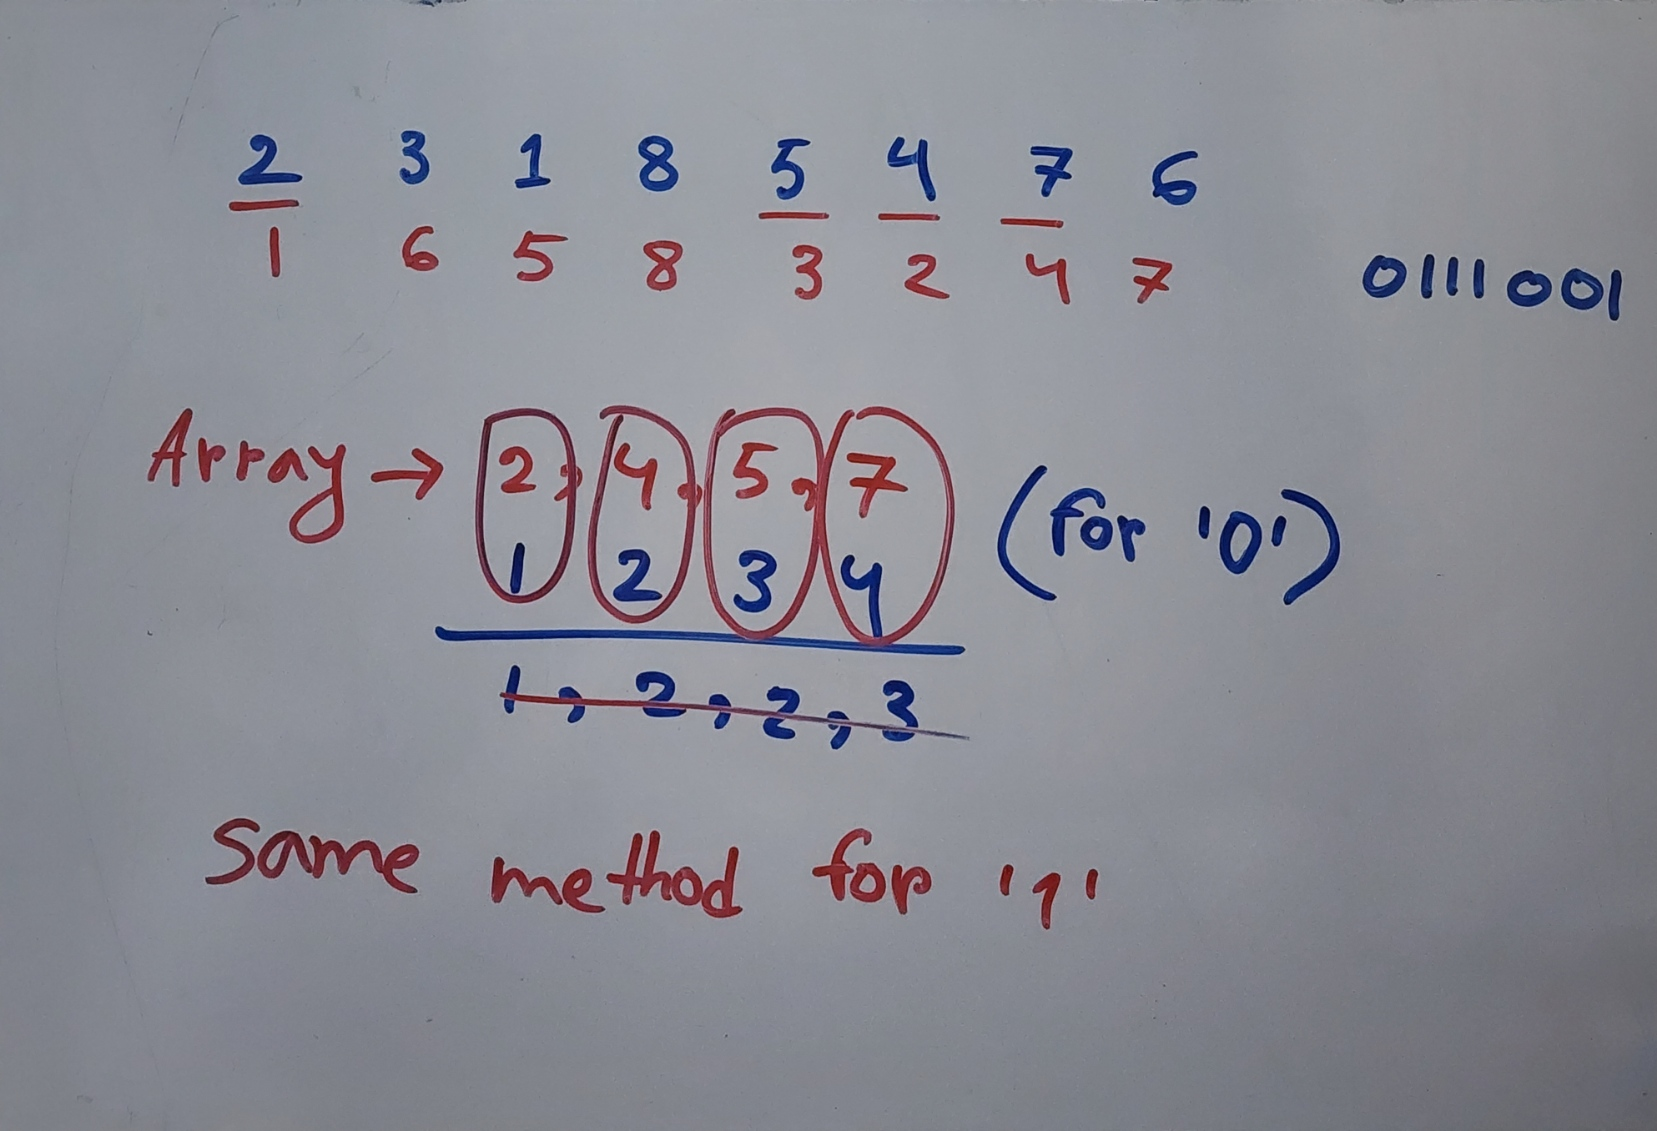 2 3 1 8 5 4 7 6
1 6 5 8 3 2 4 7
0111001
Array → 2, 4, 5, 7 (for '0')
1 2 3 4
1, 2, 2, 3
Same method for '1'